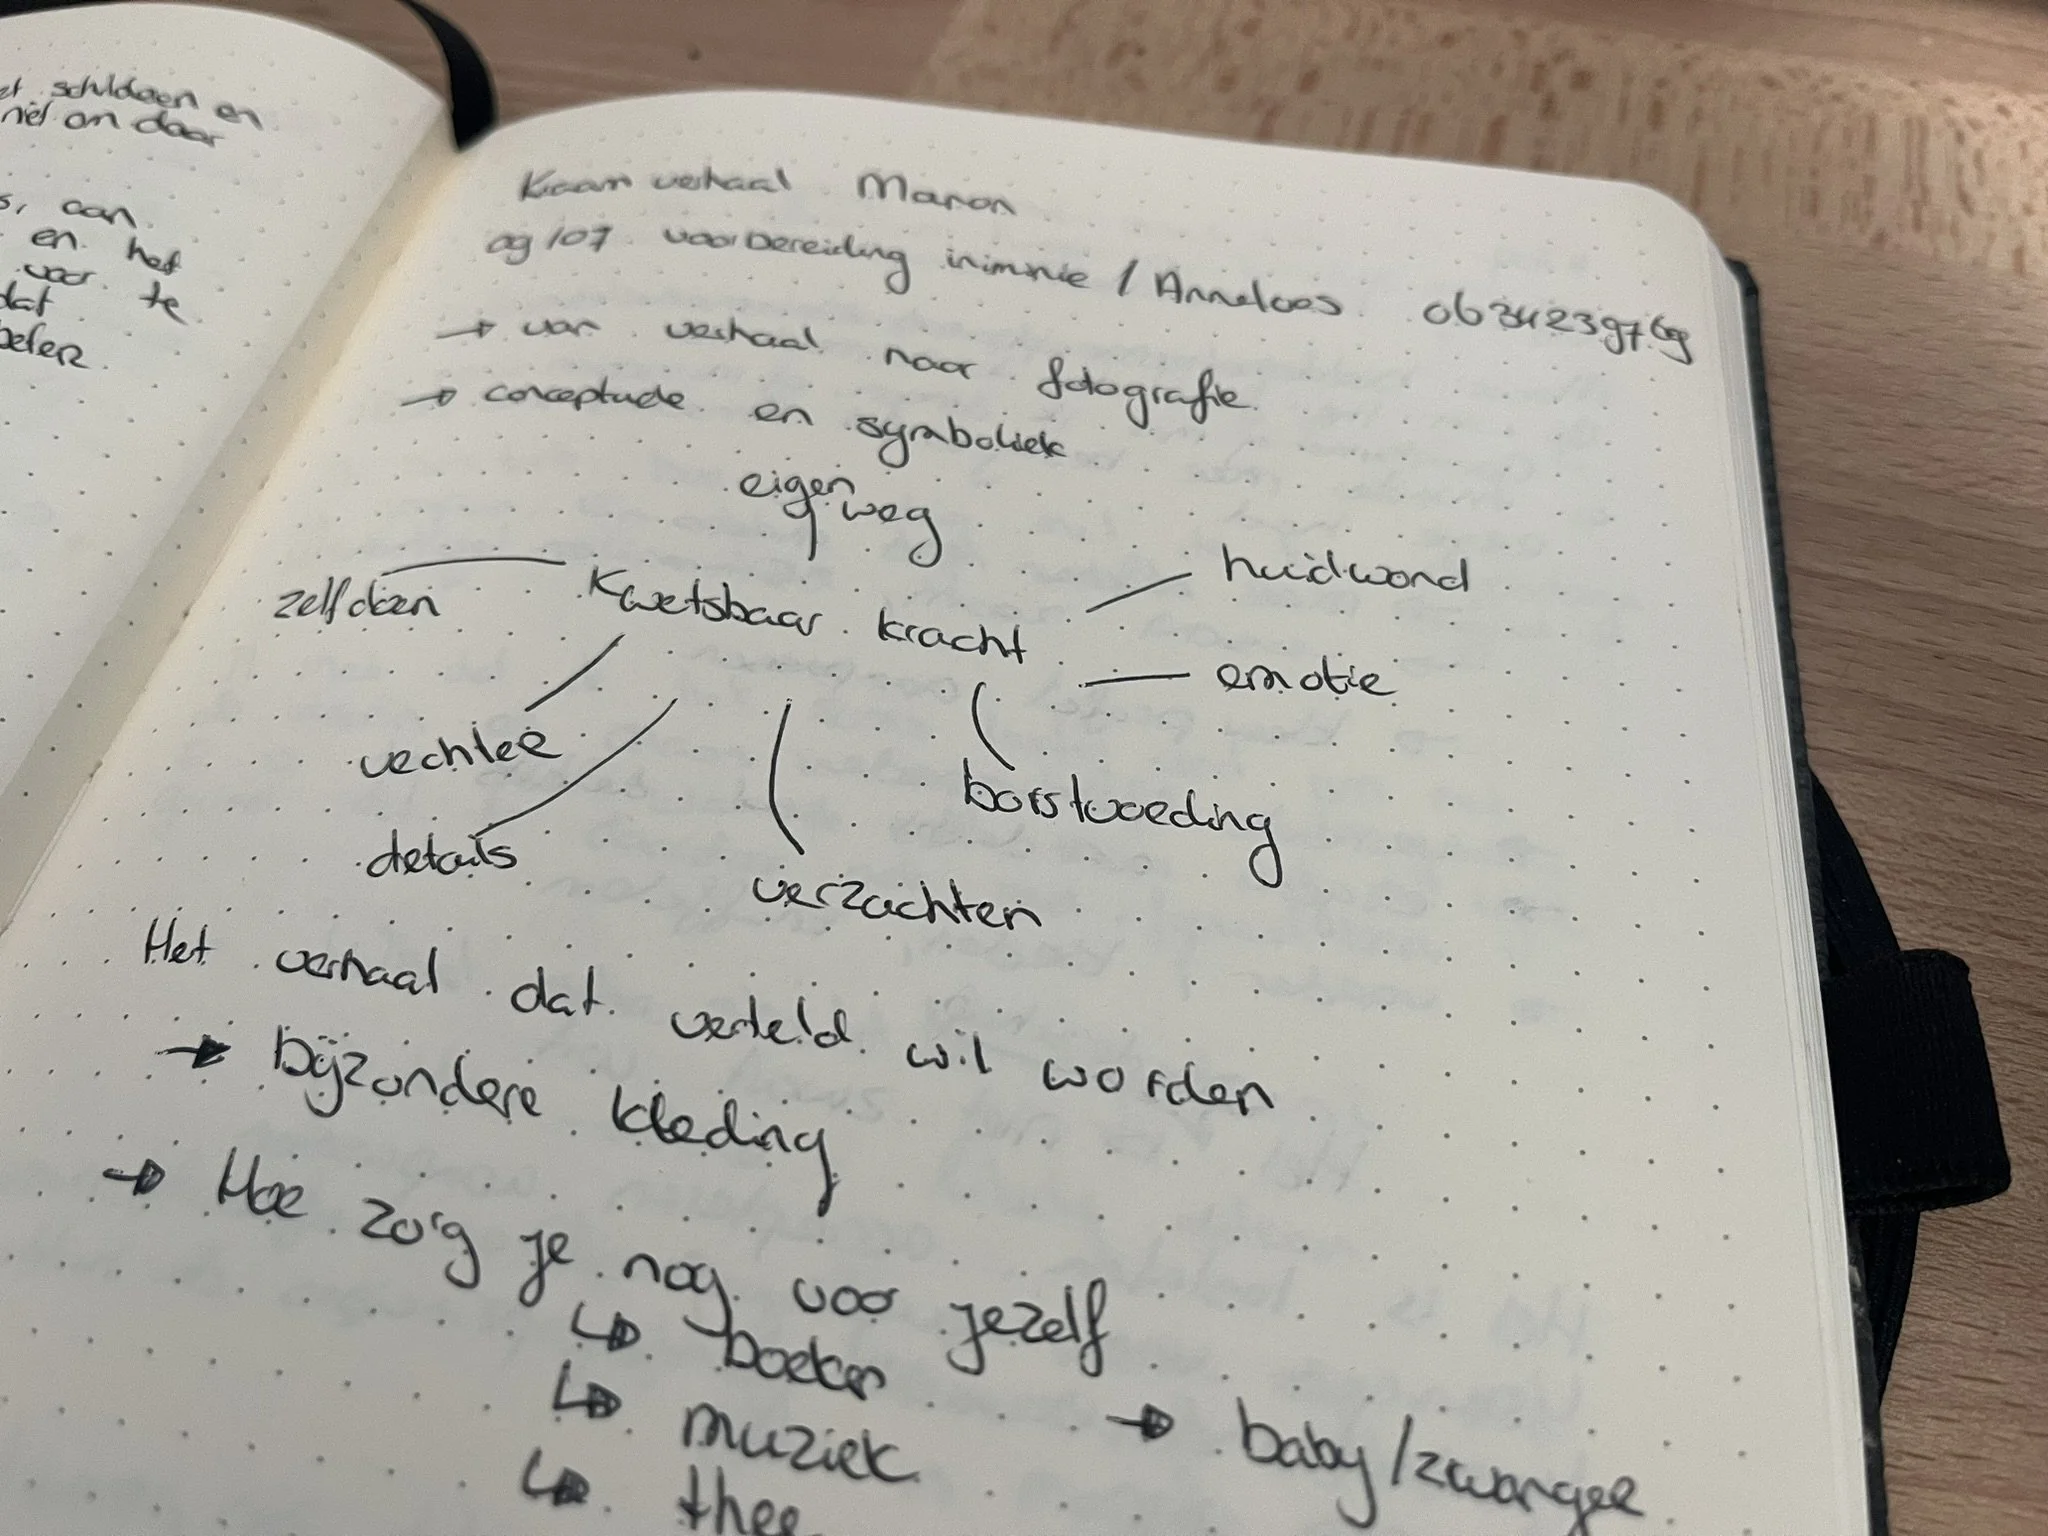 et schilderen en
niet om daar
s, aan
en het
voor te
dat
Kraam verhaal Manon
09/07 voorbereiding / Anneloes
→ van verhaal naar fotografie
→ conceptuele en symboliek
eigen weg
zelf doen
Kwetsbaar kracht
huidwond
emotie
vechter
borstvoeding
details
verzachten
Het verhaal dat verteld wil worden
→ bijzondere kleding
→ Hoe zorg je nog voor jezelf
↳ boeken
↳ muziek
→ baby/zwanger
↳ thee